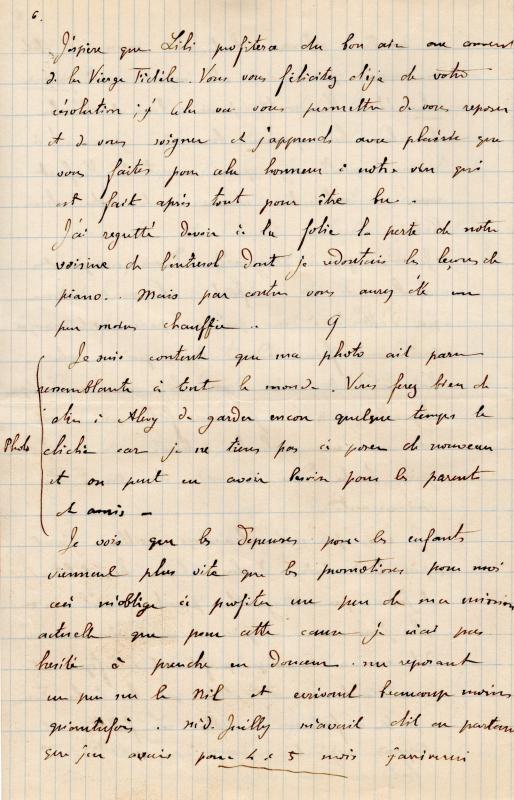 6.
J'espère que Lili profitera du bon air au couvent
de la Vierge Fidèle. Vous vous félicitez déjà de votre
résolution ; cela va vous permettre de vous reposer
et de vous soigner et j'apprends avec plaisir que
vous faites pour cela honneur à notre vin qui
est fait après tout pour être bu.
J'ai regretté devoir à la folie la perte de notre
voisine de l'entresol dont je redoutais les leçons de
piano.. Mais par contre vous aurez été un
peu moins chauffée.. 9
Je suis content que ma photo ait paru
ressemblante à tout le monde. Vous ferez bien de
dire à Alevy de garder encore quelque temps le
Photo
cliché car je ne tiens pas à poser de nouveau
et on peut en avoir besoin pour les parents
et amis —
Je vois que les dépenses pour les enfants
viennent plus vite que les promotions pour moi
ceci m'oblige à profiter un peu de ma mission
actuelle que pour cette cause je n'ai pas
hésité à prendre en douceur me reposant
un peu sur le Nil et écrivant beaucoup moins
qu'autrefois. Mr Jailly m'avait dit en partant
que j'en avais pour 4 à 5 mois